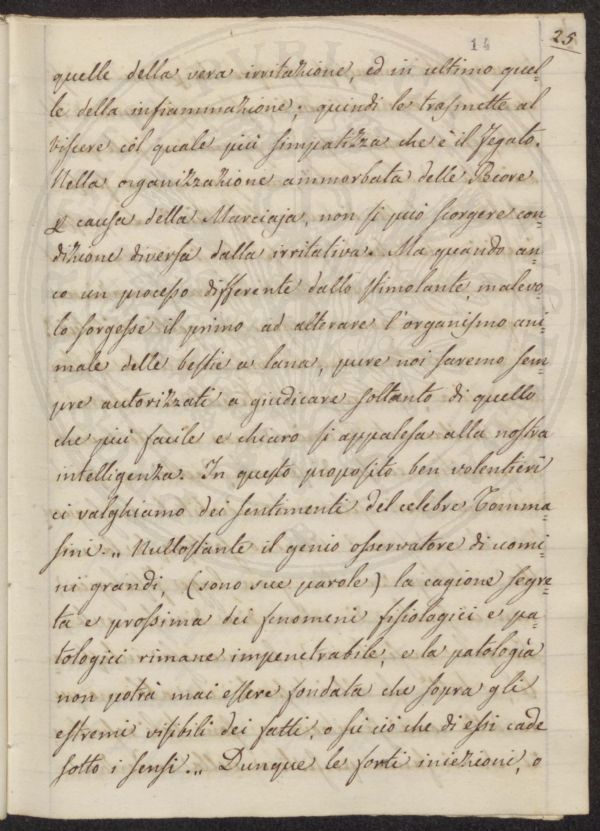 14
25
quelle della vera irritazione, ed in ultimo quel=
le della infiammazione; quindi le trasmette al
viscere col quale più simpatizza che è il Fegato.
Nella organizzazione ammorbata delle Pecore
causa della Marciaja, non si può scorgere con=
dizione diversa dalla irritativa. Ma quando an=
co un processo differente dallo stimolante, malevo=
lo sorgesse il primo ad alterare l'organismo ani=
male delle bestie a lana, pure noi saremo sem=
pre autorizzati a giudicare soltanto di quello
che più facile e chiaro si appalesa alla nostra
intelligenza. In questo proposito ben volentieri
ci valghiamo dei sentimenti del celebre Tomma=
sini „ Nullostante il genio osservatore di uomi=
ni grandi, (sono sue parole) la cagione segre=
ta e prossima dei fenomeni fisiologici e pa=
tologici rimane impenetrabile, e la patologia
non potrà mai essere fondata che sopra gli
estremi visibili dei fatti, o su ciò che di essi cade
sotto i sensi „ Dunque le forti iniezioni, o